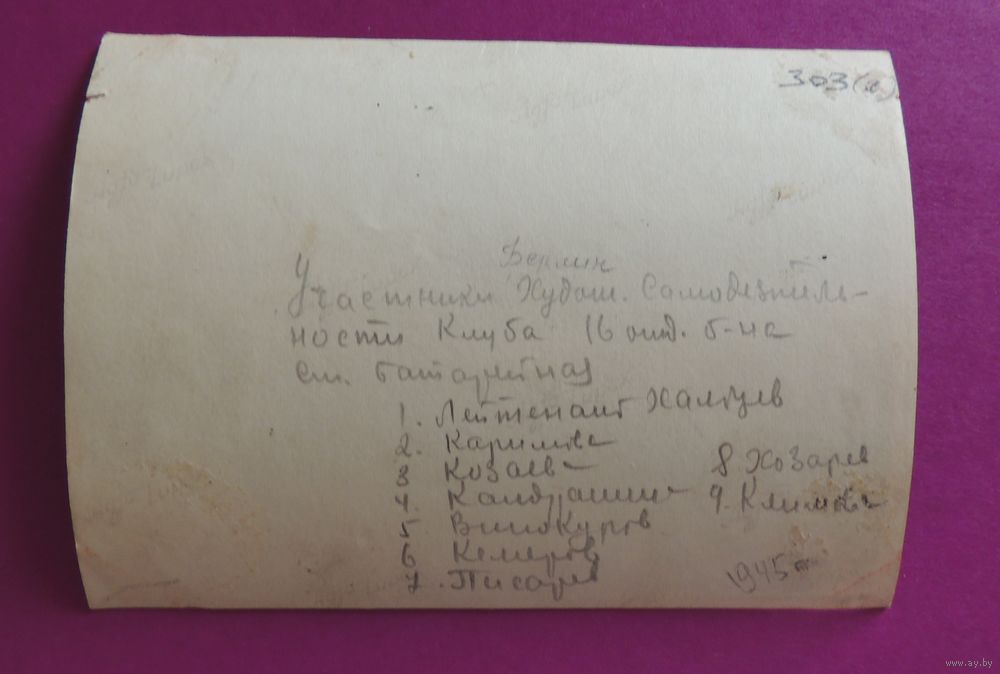 303(а)
Берлин
Участники Худож. Самодеятель-
ности Клуба 16 отд. б-на
ст. батарейная
1. Лейтенант
2. Каримов
3 Козаев
4. Кандрашин
5 Винокуров
6 Кемеров
7. Писарев
8 Хозарев
9. Климов
1945
www.ay.by